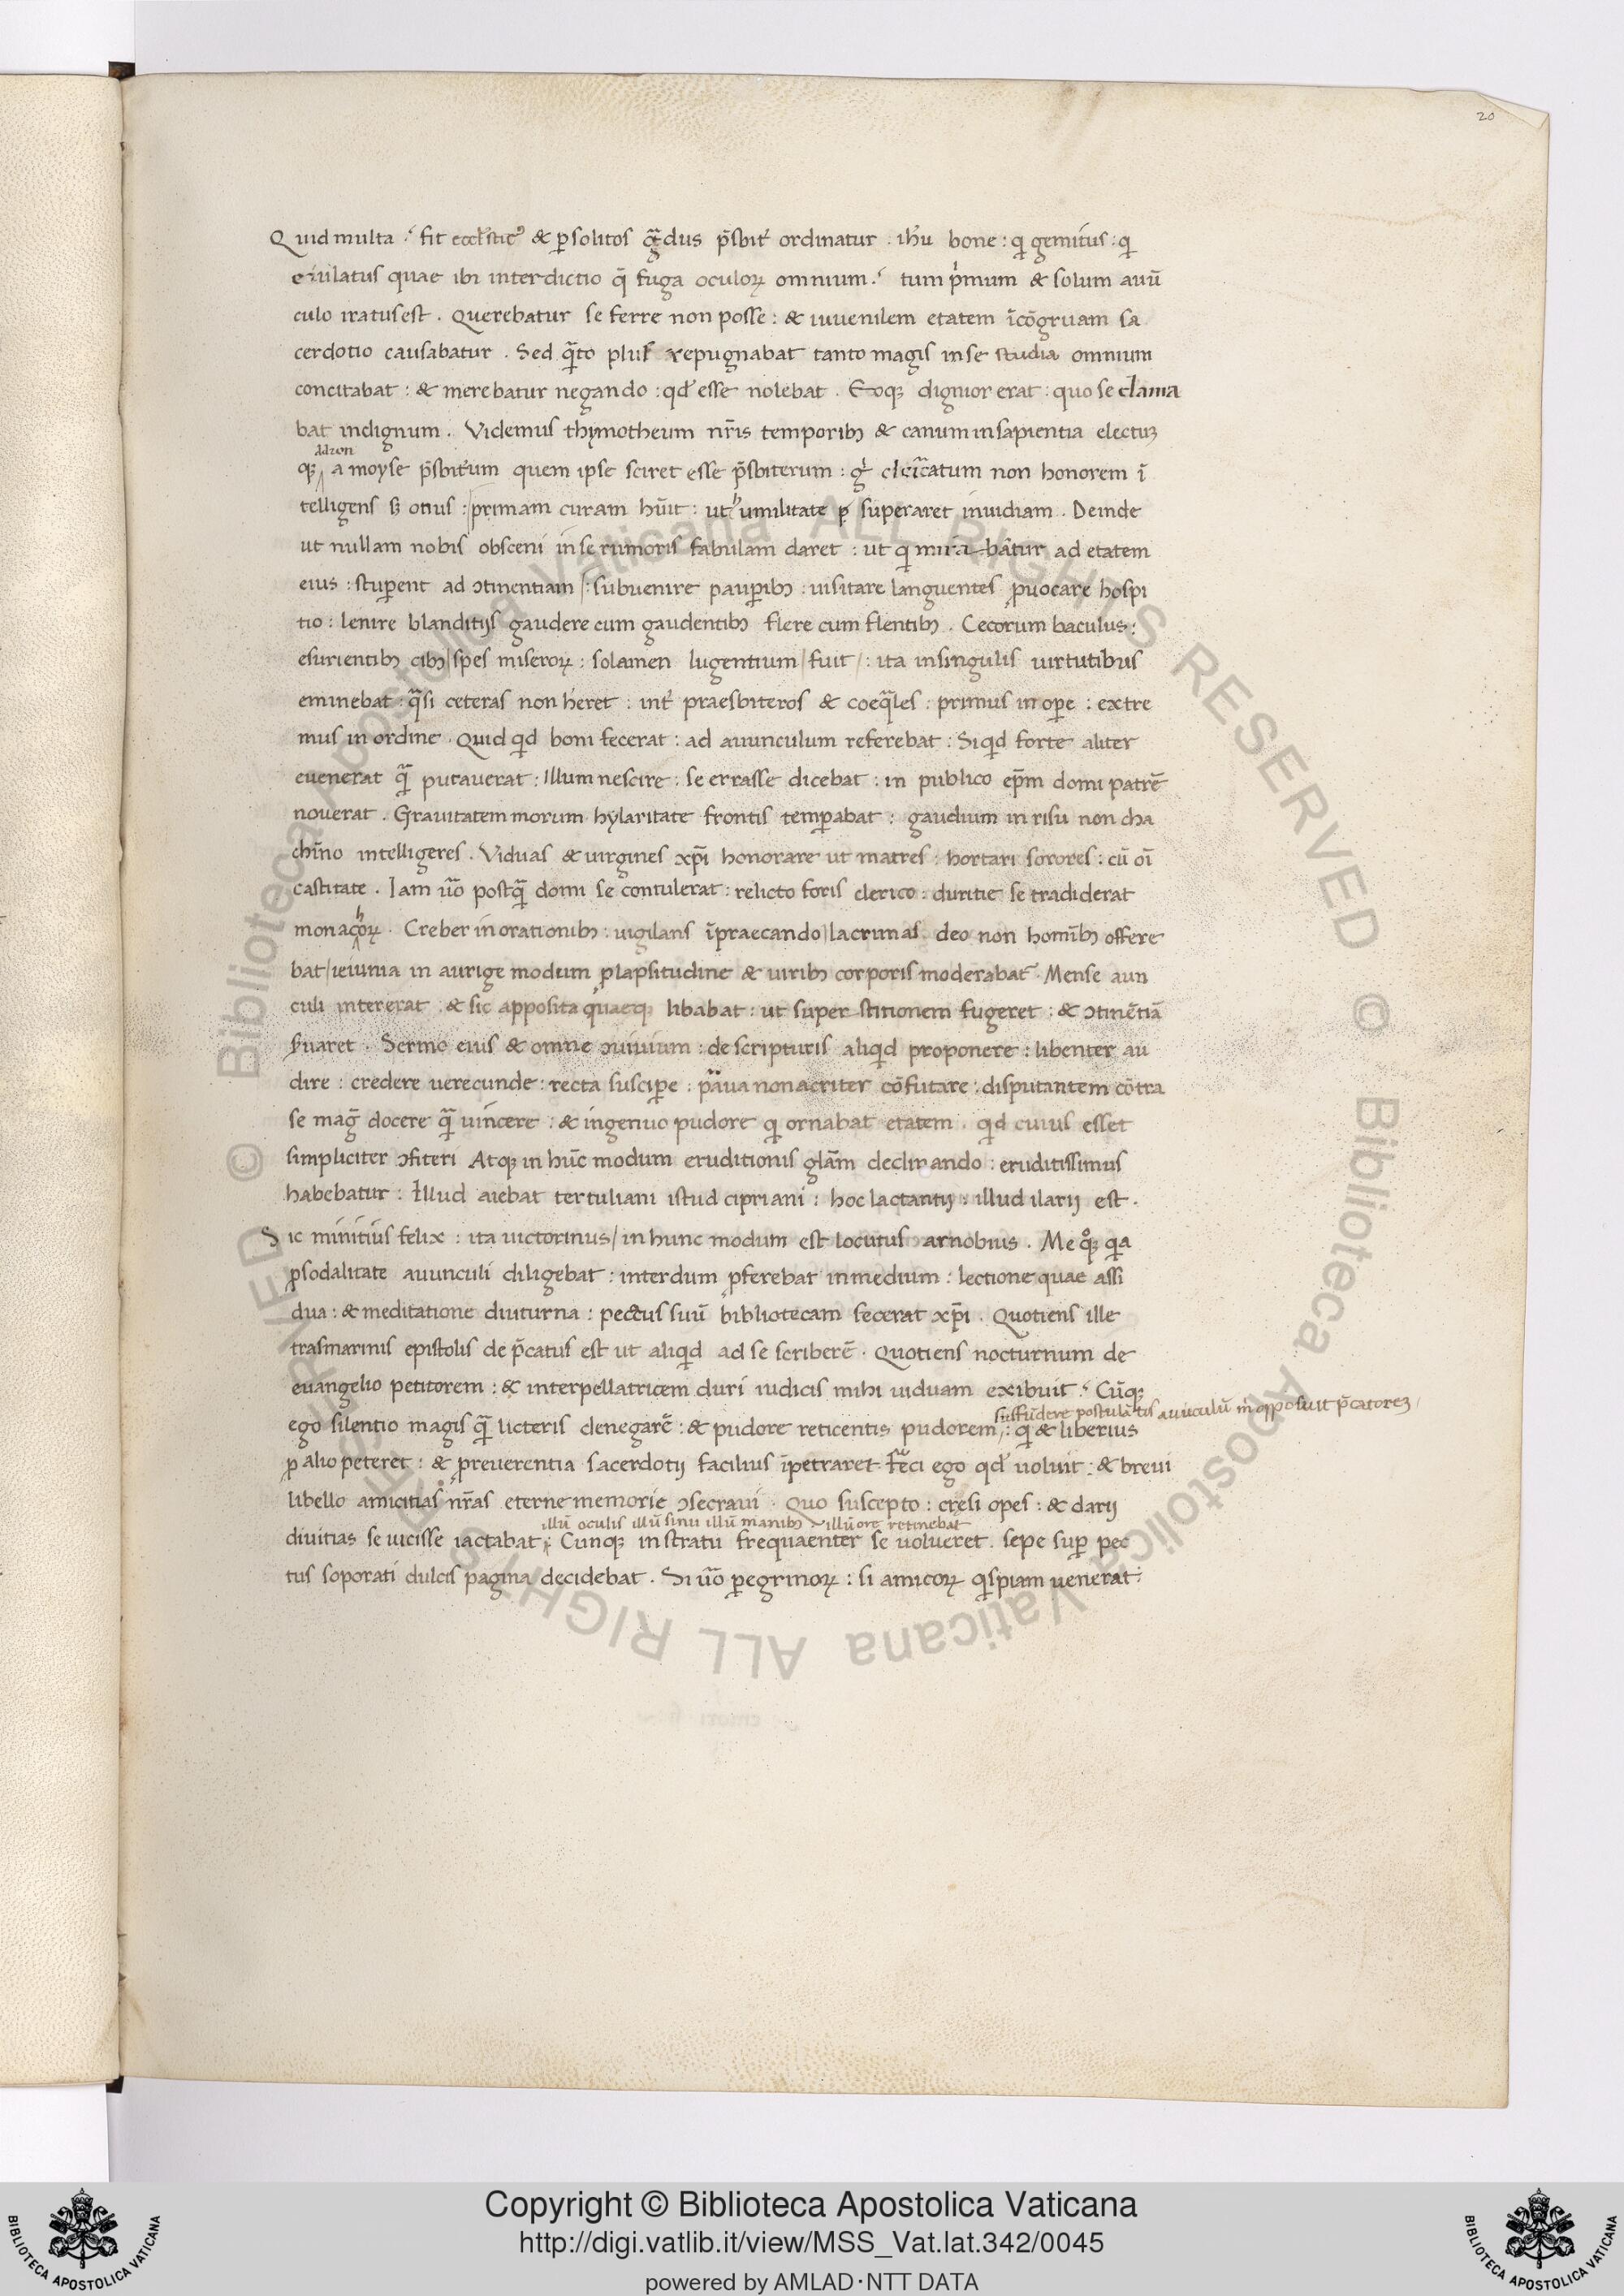 20
Quid multa ? fit eccl'stic9 & p solitos gͣdus p̄sbit' ordinatur . ihu bone : q gemitus : q
eiulatus quae ibi interdictio q̄ fuga oculoꝝ omnium ? tum pͥmum & solum auū
culo iratus est . Querebatur se ferre non posse : & iuuenilem etatem īcōgruam sa
cerdotio causabatur . Sed qͣto plus repugnabat tanto magis in se studia omnium
concitabat : & merebatur negando : qd' esse nolebat . Eoqꝫ dignior erat : quo se clama
bat indignum . Videmus thymotheum nr̄is temporibꝫ & canum in sapientia electūꝫ
qꝫ adiron a moyse p̄sbit'um quem ipse sciret esse p̄sbiterum : gͥ cleicͣatum non honorem ī
telligens sꝫ onus : primam curam hūit : ut humilitate superaret inuidiam . Deinde
ut nullam nobis obsceni in se rumoris fabulam daret : ut q mira bātur ad etatem
eius : stupent ad ɔtinentiam : subuenire paupibꝫ : uisitare languentes ꝓuocare hospi
tio : lenire blanditijs gaudere cum gaudentibꝫ flere cum flentibꝫ . Cecorum baculus :
esurientibꝫ cibꝫ spes miseroꝝ : solamen lugentium fuit : ita in singulis uirtutibus
eminebat : qͣsi ceteras non heret : int' praesbiteros & coeqͣles : primus in ope : extre
mus in ordine . Quid qd boni fecerat : ad auunculum referebat : Si qd forte aliter
euenerat qͣ putauerat : illum nescire : se errasse dicebat : in publico ep̄m domi patrē
nouerat . Grauitatem morum hylaritate frontis tempabat : gaudium in risu non cha
chīno intelligeres . Viduas & uirgines xp̄i honorare ut matres : hortari sorores : cū oī
castitate . Iam uͦo postqͣ domi se contulerat : relicto foris clerico : duritie se tradiderat
monachoꝝ . Creber in orationibꝫ : uigilans ī praecando lacrimas deo non homībꝫ offere
bat ieiunia in aurige modum ꝓ lapsitudine & uiribꝫ corporis moderabat' . Mense auun
culi intererat & sic apposita quaeqꝫ libabat : ut super stitionem fugeret : & ɔtinētiā
ẜuaret . Sermo eius & omne ɔuiuium : de scripturis aliqd proponere : libenter au
dire : credere uerecunde : recta suscipe : pͣua non acriter cōfutare : disputantem cōtra
se maḡ docere qͣ uincere : & ingenuo pudore q ornabat etatem . qd cuius esset
simpliciter ɔfiteri Atqꝫ in hūc modum eruditionis glām declinando : eruditissimus
habebatur : Illud aiebat tertuliani istud cipriani : hoc lactantij : illud ilarij est .
Sic minitius felix : ita uictorinus / in hunc modum est locutus arnobius . Me qͦꝫ qa
ꝓ sodalitate auunculi diligebat : interdum ꝓferebat in medium : lectione quae assi
dua : & meditatione diuturna : pectus suū bibliotecam fecerat xp̄i . Quotiens ille
trasmarinis epistolis de p̄catus est ut aliqid ad se scriberē . Quotiens nocturnum de
euangelio petitorem : & interpellatricem duri iudicis mihi uiduam exibuit ? Cūqꝫ
suffūdere postulātis auuiculū m̄ opposuit p̄catoreꝫ
ego silentio magis qͣ licteris denegarē : & pudore reticentis pudorem : q & liberius
ꝓ alio peteret : & ꝓ reuerentia sacerdotij facilius īpetraret feci ego qd' uoluit : & breui
libello amicitias nr̄as eterne memorie ɔsecraui . Quo suscepto : cresi opes : & darij
illū oculis illū sinu illū manibꝫ illū ore retinebat
diuitias se uicisse iactabat : Cunqꝫ in stratu frequaenter se uolueret . sepe sup pec
tus soporati dulcis pagina decidebat . Si uͦo pegrinoꝝ : si amicoꝝ qͥspiam uenerat :
Copyright © Biblioteca Apostolica Vaticana
http://digi.vatlib.it/view/MSS_Vat.lat.342/0045
powered by AMLAD·NTT DATA
BIBLIOTECA APOSTOLICA VATICANA
BIBLIOTECA APOSTOLICA VATICANA
© Biblioteca Apostolica Vaticana ALL RIGHTS RESERVED © Biblioteca Apostolica Vaticana ALL RIGHTS RESERVED